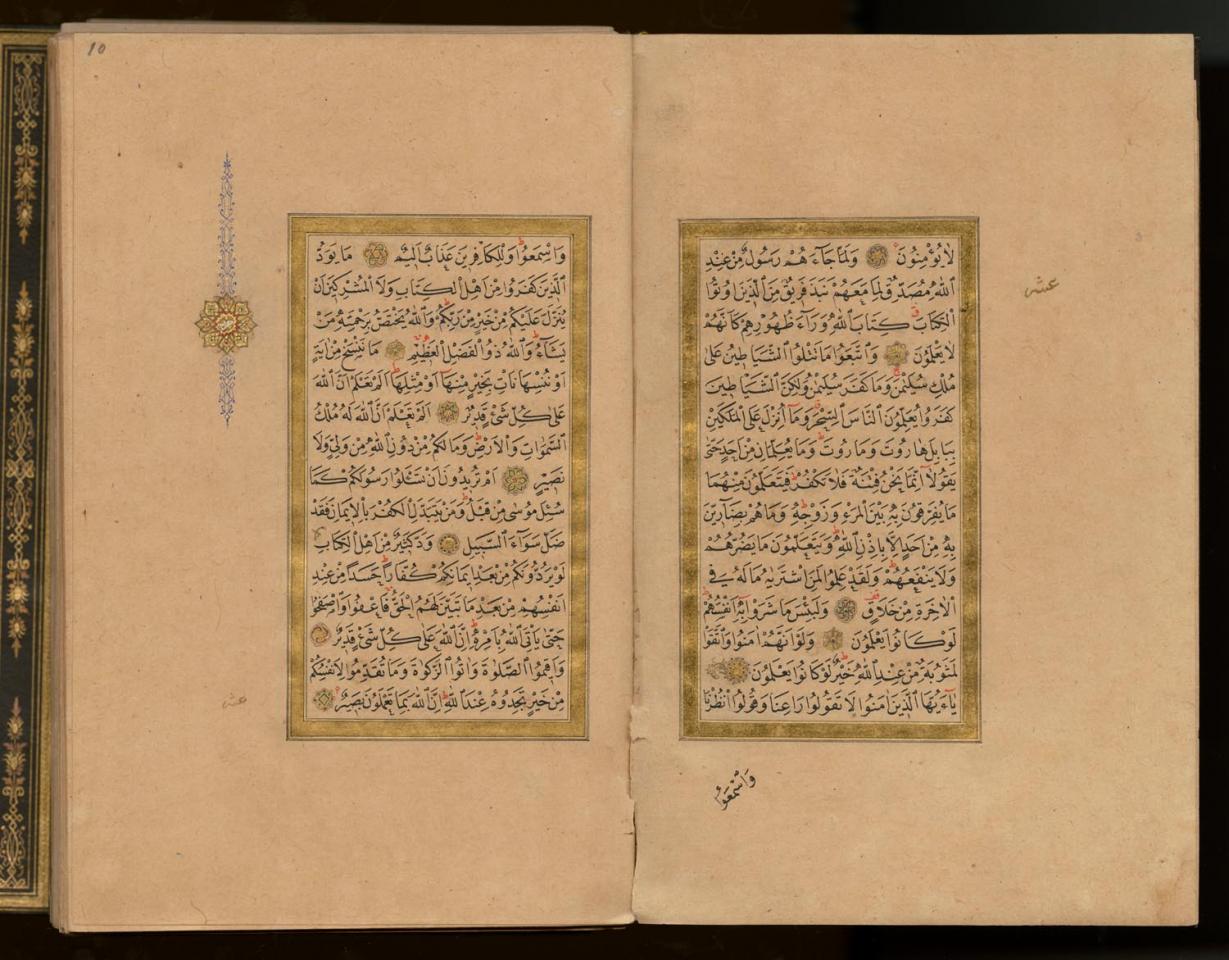 لَا يُؤْمِنُونَ وَلَمَّا جَآءَهُمْ رَسُولٌ مِنْ عِنْدِ
اللّٰهِ مُصَدِّقٌ لِمَا مَعَهُمْ نَبَذَ فَرِيقٌ مِنَ الَّذِينَ اُوتُوا
الْكِتَابَ كِتَابَ اللّٰهِ وَرَآءَ ظُهُورِهِمْ كَاَنَّهُمْ
لَا يَعْلَمُونَ وَاتَّبَعُوا مَا تَتْلُوا الشَّيَاطِينُ عَلٰى
مُلْكِ سُلَيْمٰنَ وَمَا كَفَرَ سُلَيْمٰنُ وَلٰكِنَّ الشَّيَاطِينَ
كَفَرُوا يُعَلِّمُونَ النَّاسَ السِّحْرَ وَمَآ اُنْزِلَ عَلَى الْمَلَكَيْنِ
بِبَابِلَ هَارُوتَ وَمَارُوتَ وَمَا يُعَلِّمَانِ مِنْ اَحَدٍ حَتّٰى
يَقُولَآ اِنَّمَا نَحْنُ فِتْنَةٌ فَلَا تَكْفُرْ فَيَتَعَلَّمُونَ مِنْهُمَا
مَا يُفَرِّقُونَ بِهِ بَيْنَ الْمَرْءِ وَزَوْجِهِ وَمَا هُمْ بِضَآرِّينَ
بِهِ مِنْ اَحَدٍ اِلَّا بِاِذْنِ اللّٰهِ وَيَتَعَلَّمُونَ مَا يَضُرُّهُمْ
وَلَا يَنْفَعُهُمْ وَلَقَدْ عَلِمُوا لَمَنِ اشْتَرٰيهُ مَا لَهُ فِي
الْاٰخِرَةِ مِنْ خَلَاقٍ وَلَبِئْسَ مَا شَرَوْا بِهِ اَنْفُسَهُمْ
لَوْ كَانُوا يَعْلَمُونَ وَلَوْ اَنَّهُمْ اٰمَنُوا وَاتَّقَوْا
لَمَثُوبَةٌ مِنْ عِنْدِ اللّٰهِ خَيْرٌ لَوْ كَانُوا يَعْلَمُونَ
يَآ اَيُّهَا الَّذِينَ اٰمَنُوا لَا تَقُولُوا رَاعِنَا وَقُولُوا انْظُرْنَا
وَاسْمَعُوا
عشر
10
وَاسْمَعُوا وَلِلْكَافِرِينَ عَذَابٌ اَلِيمٌ مَا يَوَدُّ
الَّذِينَ كَفَرُوا مِنْ اَهْلِ الْكِتَابِ وَلَا الْمُشْرِكِينَ اَنْ
يُنَزَّلَ عَلَيْكُمْ مِنْ خَيْرٍ مِنْ رَبِّكُمْ وَاللّٰهُ يَخْتَصُّ بِرَحْمَتِهِ مَنْ
يَشَآءُ وَاللّٰهُ ذُو الْفَضْلِ الْعَظِيمِ مَا نَنْسَخْ مِنْ اٰيَةٍ
اَوْ نُنْسِهَا نَأْتِ بِخَيْرٍ مِنْهَآ اَوْ مِثْلِهَا اَلَمْ تَعْلَمْ اَنَّ اللّٰهَ
عَلٰى كُلِّ شَيْءٍ قَدِيرٌ اَلَمْ تَعْلَمْ اَنَّ اللّٰهَ لَهُ مُلْكُ
السَّمٰوَاتِ وَالْاَرْضِ وَمَا لَكُمْ مِنْ دُونِ اللّٰهِ مِنْ وَلِيٍّ وَلَا
نَصِيرٍ اَمْ تُرِيدُونَ اَنْ تَسْئَلُوا رَسُولَكُمْ كَمَا
سُئِلَ مُوسٰى مِنْ قَبْلُ وَمَنْ يَتَبَدَّلِ الْكُفْرَ بِالْاِيمَانِ فَقَدْ
ضَلَّ سَوَآءَ السَّبِيلِ وَدَّ كَثِيرٌ مِنْ اَهْلِ الْكِتَابِ
لَوْ يَرُدُّونَكُمْ مِنْ بَعْدِ اِيمَانِكُمْ كُفَّارًا حَسَدًا مِنْ عِنْدِ
اَنْفُسِهِمْ مِنْ بَعْدِ مَا تَبَيَّنَ لَهُمُ الْحَقُّ فَاعْفُوا وَاصْفَحُوا
حَتّٰى يَأْتِيَ اللّٰهُ بِاَمْرِهِ اِنَّ اللّٰهَ عَلٰى كُلِّ شَيْءٍ قَدِيرٌ
وَاَقِيمُوا الصَّلٰوةَ وَاٰتُوا الزَّكٰوةَ وَمَا تُقَدِّمُوا لِاَنْفُسِكُمْ
مِنْ خَيْرٍ تَجِدُوهُ عِنْدَ اللّٰهِ اِنَّ اللّٰهَ بِمَا تَعْمَلُونَ بَصِيرٌ
عشر